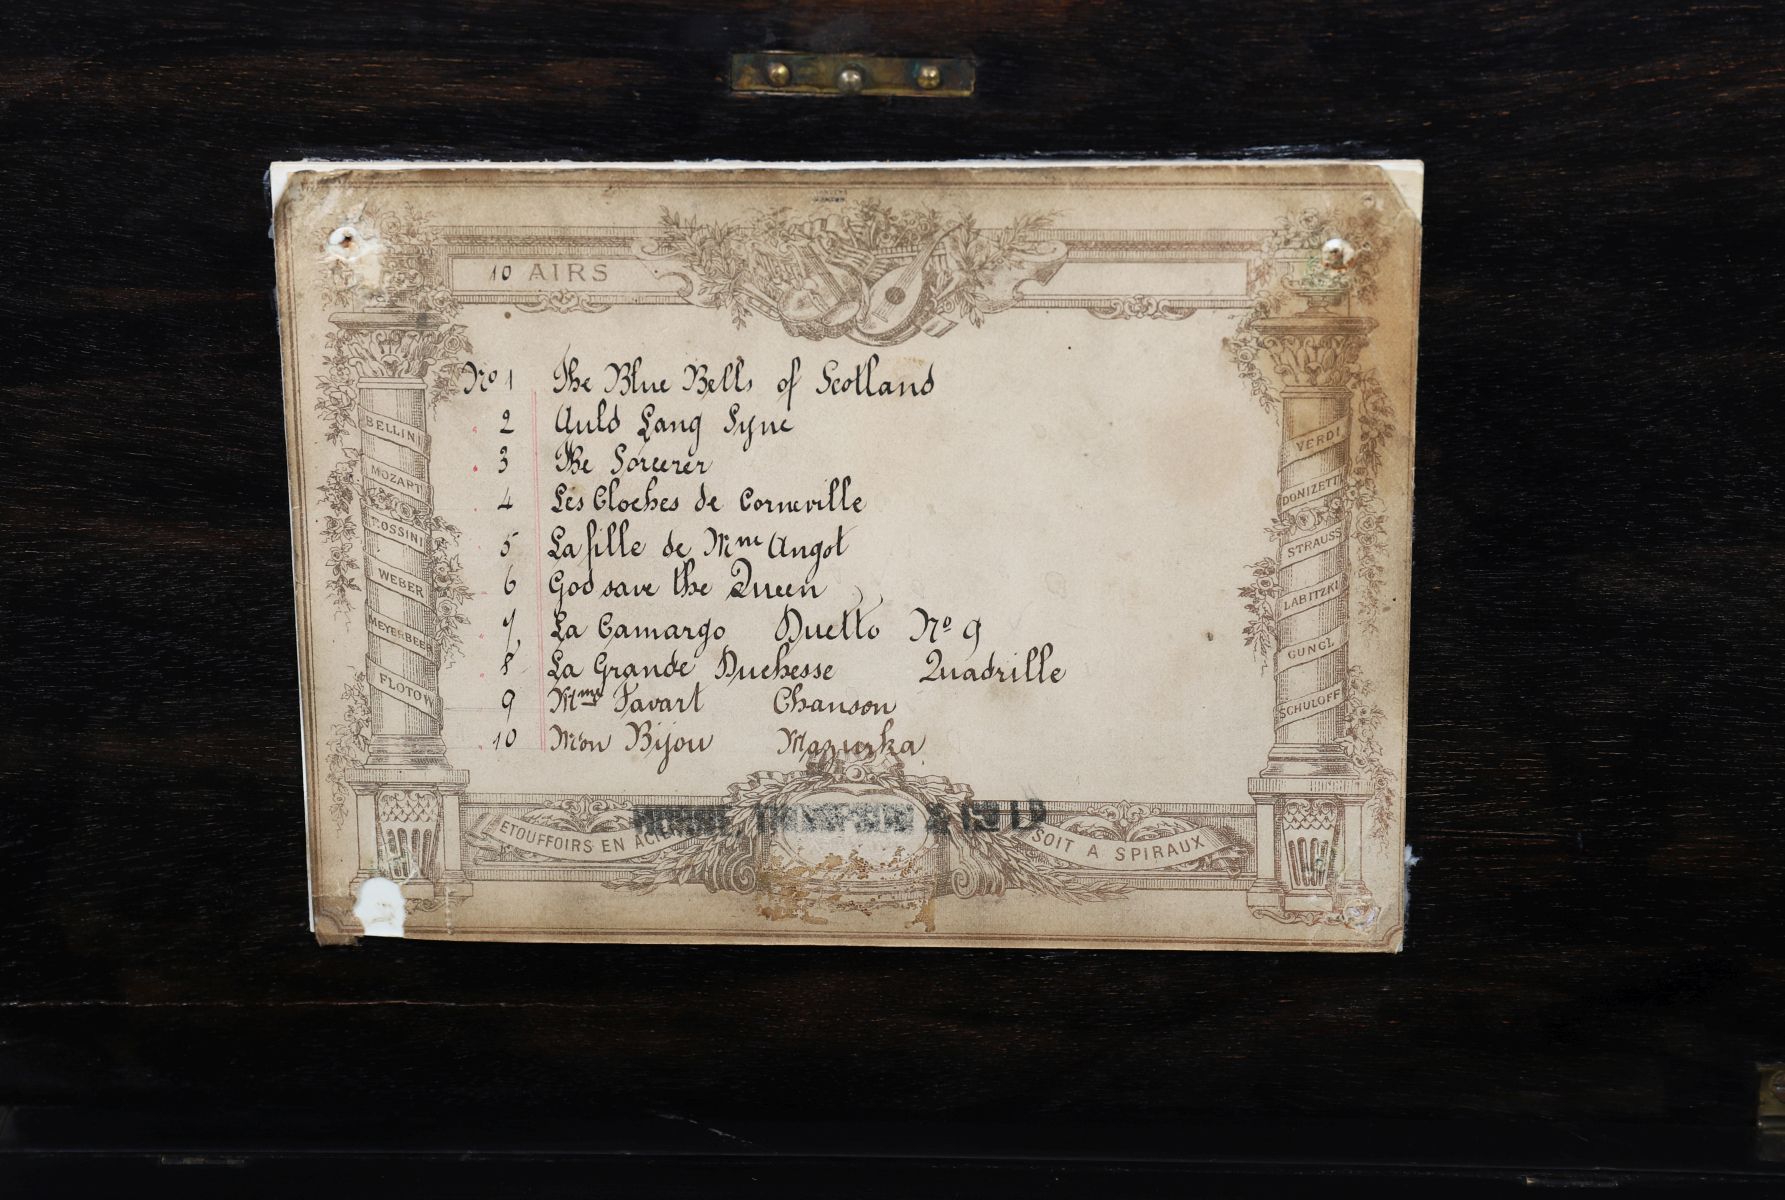 10 AIRS
No 1 The Blue Bells of Scotland
2 Auld Lang Syne
3 The Sorcerer
4 Les Cloches de Corneville
5 La fille de Mme Angot
6 God save the Queen
7 La Camargo Duetto No 9
8 La Grande Duchesse Quadrille
9 Mme Favart Chanson
10 Mon Bijou Mazurka
BELLINI
MOZART
ROSSINI
WEBER
MEYERBEER
FLOTOW
VERDI
DONIZETTI
STRAUSS
LABITZKI
GUNGL
SCHULOFF
ETOUFFOIRS EN
SOIT A SPIRAUX